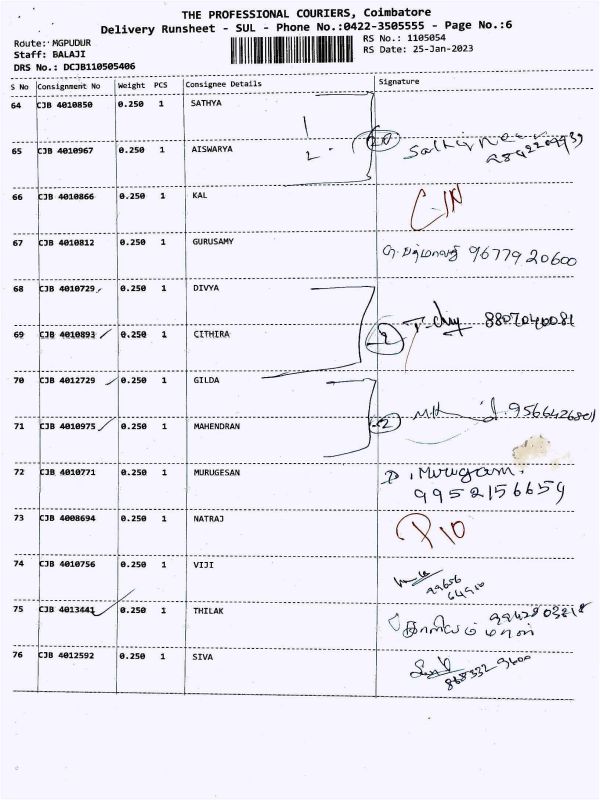 THE PROFESSIONAL COURIERS, Coimbatore
Delivery Runsheet - SUL - Phone No.:0422-3505555 - Page No.:6
Route: MGPUDUR
RS No.: 1105054
Staff: BALAJI
RS Date: 25-Jan-2023
DRS No.: DCJB110505406
S No Consignment No Weight PCS Consignee Details Signature
64 CJB 4010850 0.250 1 SATHYA
1
65 CJB 4010967 0.250 1 AISWARYA 2
66 CJB 4010866 0.250 1 KAL
67 CJB 4010812 0.250 1 GURUSAMY 9677920600
68 CJB 4010729 0.250 1 DIVYA
69 CJB 4010893 0.250 1 CITHIRA 2 8807040081
70 CJB 4012729 0.250 1 GILDA
71 CJB 4010975 0.250 1 MAHENDRAN 2 9566426801
72 CJB 4010771 0.250 1 MURUGESAN D. Murugesan.
9952156659
73 CJB 4008694 0.250 1 NATRAJ P10
74 CJB 4010756 0.250 1 VIJI
75 CJB 4013441 0.250 1 THILAK
76 CJB 4012592 0.250 1 SIVA